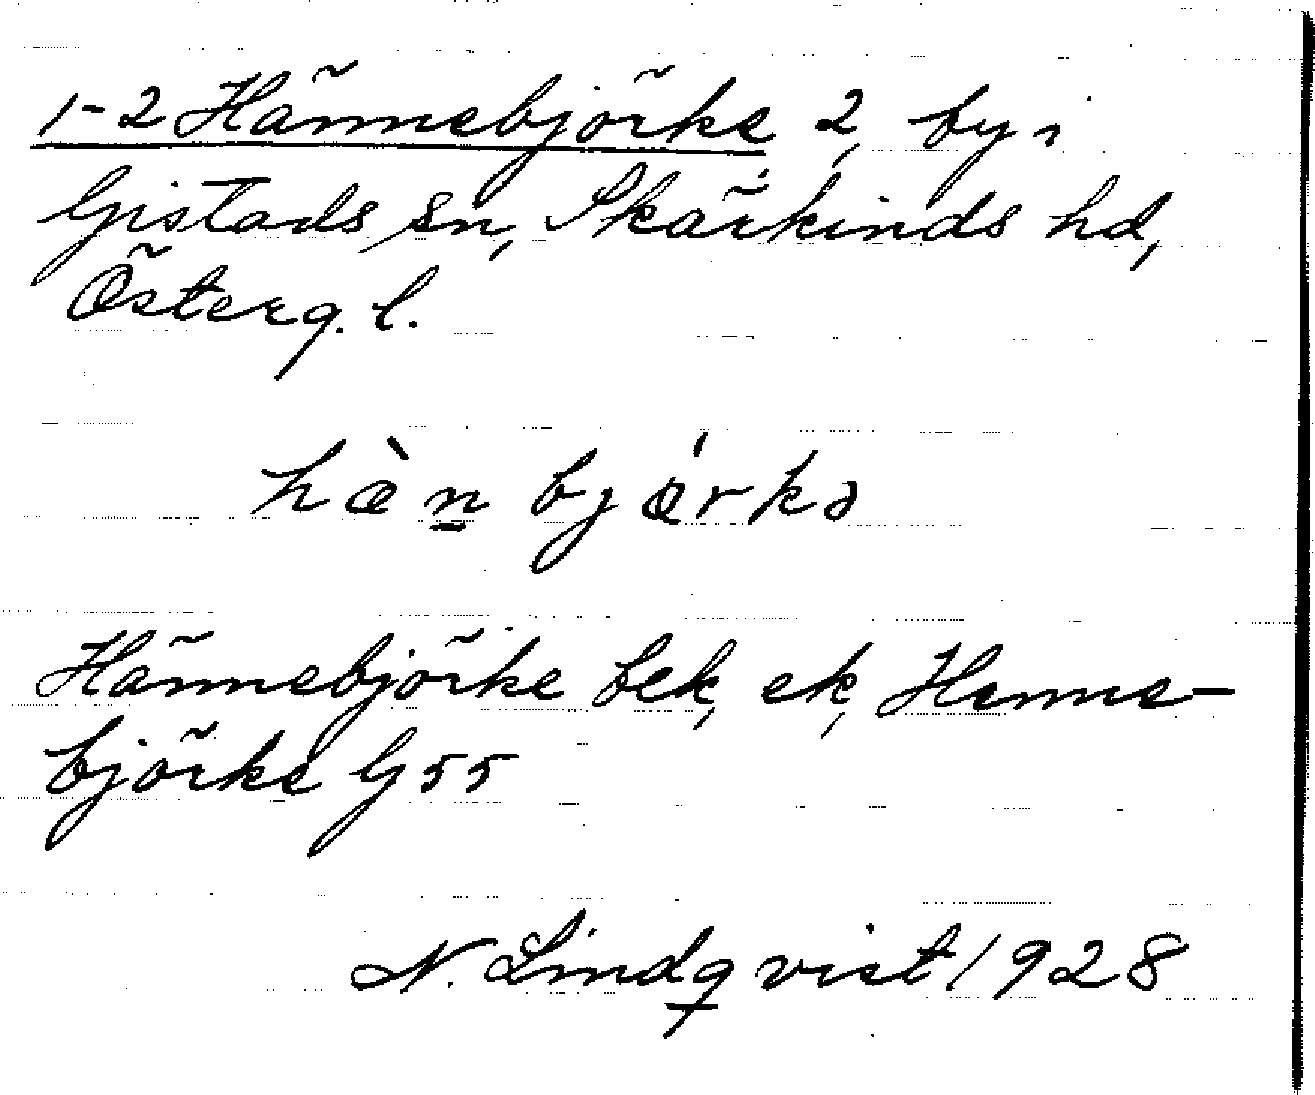 1-2 Hännebjörke 2, by i
Gistads sn, Skärkinds hd,
Österg. l.
hæ̀n bjǿrkə
Hännebjörke bek, ek, Henne-
björke G 55
N. Lindqvist 1928